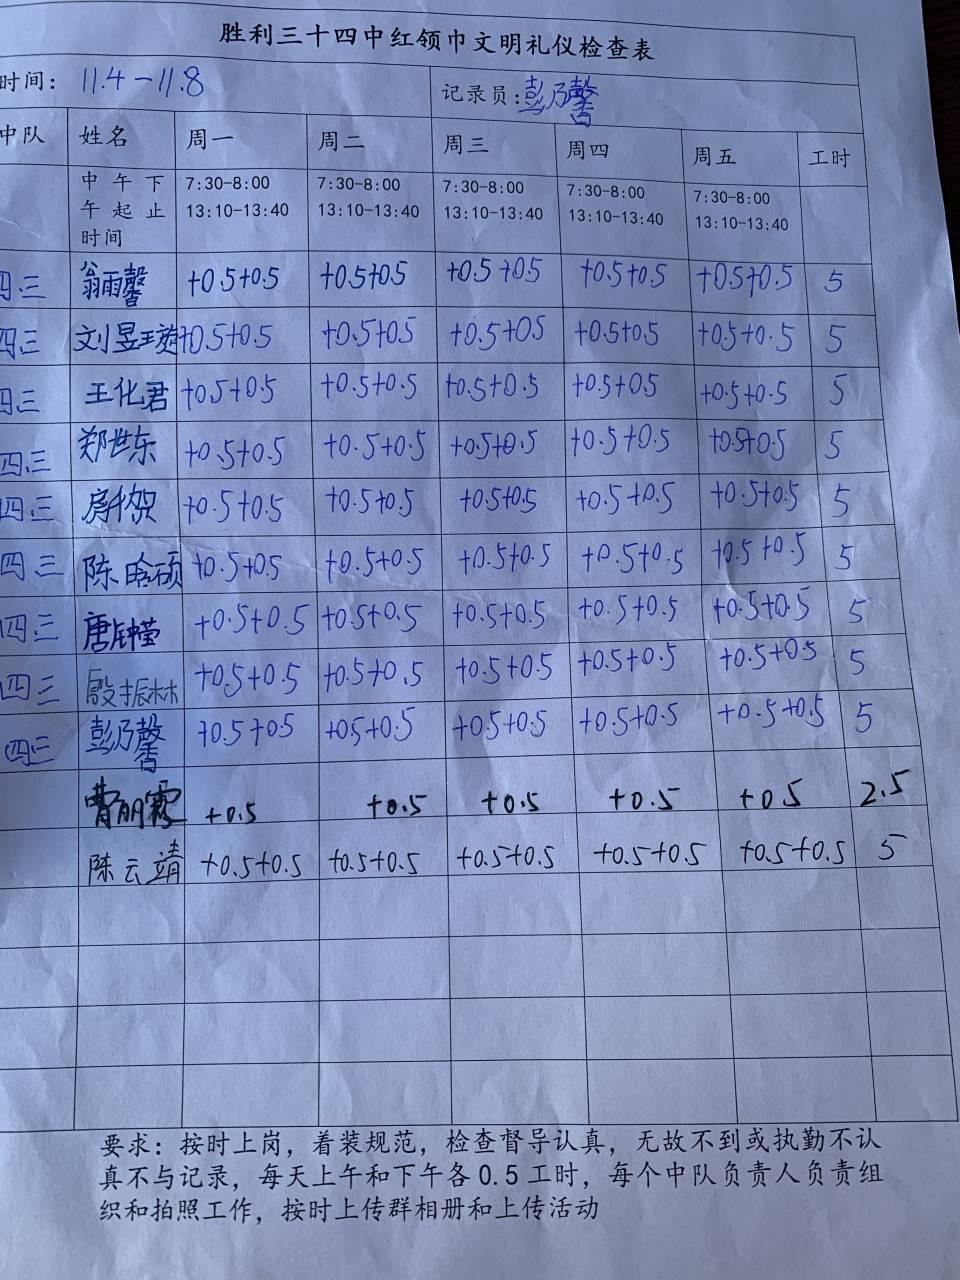 胜利三十四中红领巾文明礼仪检查表
时间： 11.4-11.8 记录员：彭乃馨
中队 姓名 周一 周二 周三 周四 周五 工时
中午下午起止时间 7:30-8:00 13:10-13:40 7:30-8:00 13:10-13:40 7:30-8:00 13:10-13:40 7:30-8:00 13:10-13:40 7:30-8:00 13:10-13:40
四.三 翁雨馨 +0.5+0.5 +0.5+0.5 +0.5+0.5 +0.5+0.5 +0.5+0.5 5
四.三 刘昱璇 +0.5+0.5 +0.5+0.5 +0.5+0.5 +0.5+0.5 +0.5+0.5 5
四.三 王化君 +0.5+0.5 +0.5+0.5 +0.5+0.5 +0.5+0.5 +0.5+0.5 5
四.三 郑世东 +0.5+0.5 +0.5+0.5 +0.5+0.5 +0.5+0.5 +0.5+0.5 5
四.三 +0.5+0.5 +0.5+0.5 +0.5+0.5 +0.5+0.5 +0.5+0.5 5
四.三 陈晗硕 +0.5+0.5 +0.5+0.5 +0.5+0.5 +0.5+0.5 +0.5+0.5 5
四.三 唐钟莹 +0.5+0.5 +0.5+0.5 +0.5+0.5 +0.5+0.5 +0.5+0.5 5
四三 殷振林 +0.5+0.5 +0.5+0.5 +0.5+0.5 +0.5+0.5 +0.5+0.5 5
四三 彭乃馨 +0.5+0.5 +0.5+0.5 +0.5+0.5 +0.5+0.5 +0.5+0.5 5
+0.5 +0.5 +0.5 +0.5 +0.5 2.5
陈云靖 +0.5+0.5 +0.5+0.5 +0.5+0.5 +0.5+0.5 +0.5+0.5 5
要求：按时上岗，着装规范，检查督导认真，无故不到或执勤不认
真不与记录，每天上午和下午各0.5工时，每个中队负责人负责组
织和拍照工作，按时上传群相册和上传活动